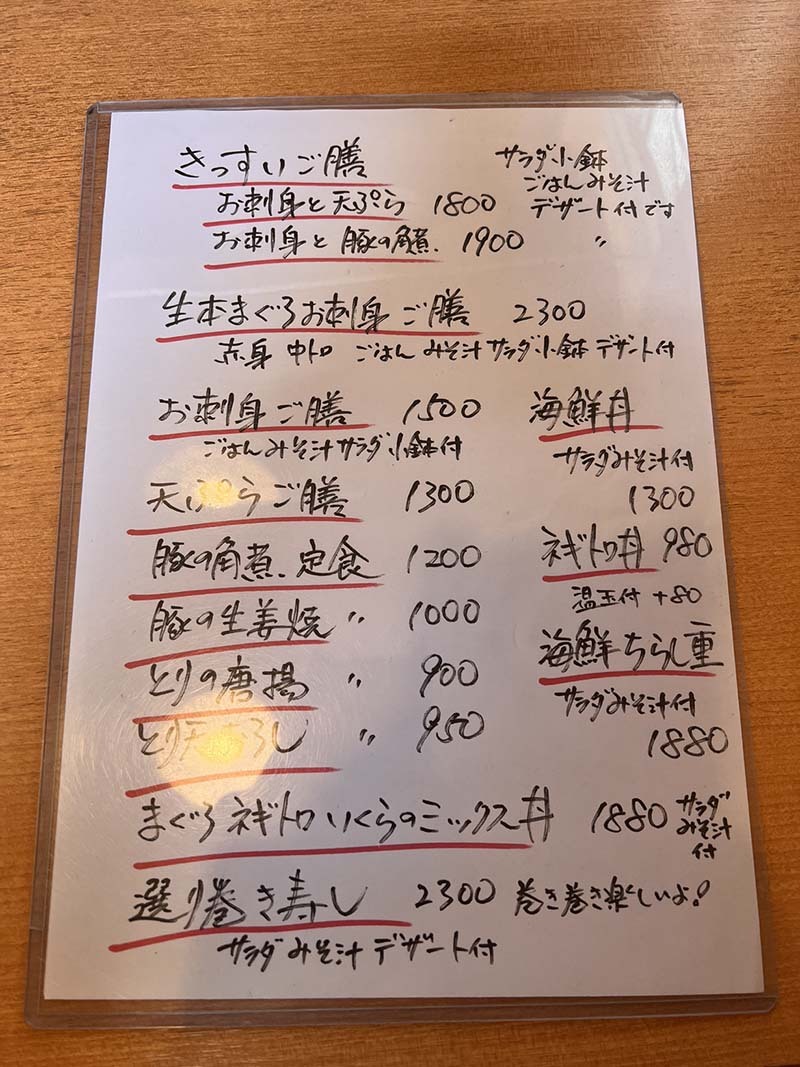 きっすいご膳
サラダ小鉢
ごはんみそ汁
デザート付です
お刺身と天ぷら 1800
お刺身と豚の角煮. 1900 〃
生本まぐろお刺身ご膳 2300
赤身 中トロ ごはん みそ汁 サラダ小鉢 デザート付
お刺身ご膳 1500
ごはんみそ汁サラダ小鉢付
天ぷらご膳 1300
豚の角煮、定食 1200
豚の生姜焼 〃 1000
とりの唐揚 〃 900
とり天おろし 〃 950
海鮮丼
サラダみそ汁付
1300
ネギトロ丼 980
温玉付 +80
海鮮ちらし重
サラダみそ汁付
1880
まぐろネギトロいくらのミックス丼 1880 サラダ
みそ汁
付
選り巻き寿し 2300 巻き巻き楽しいよ!
サラダみそ汁 デザート付